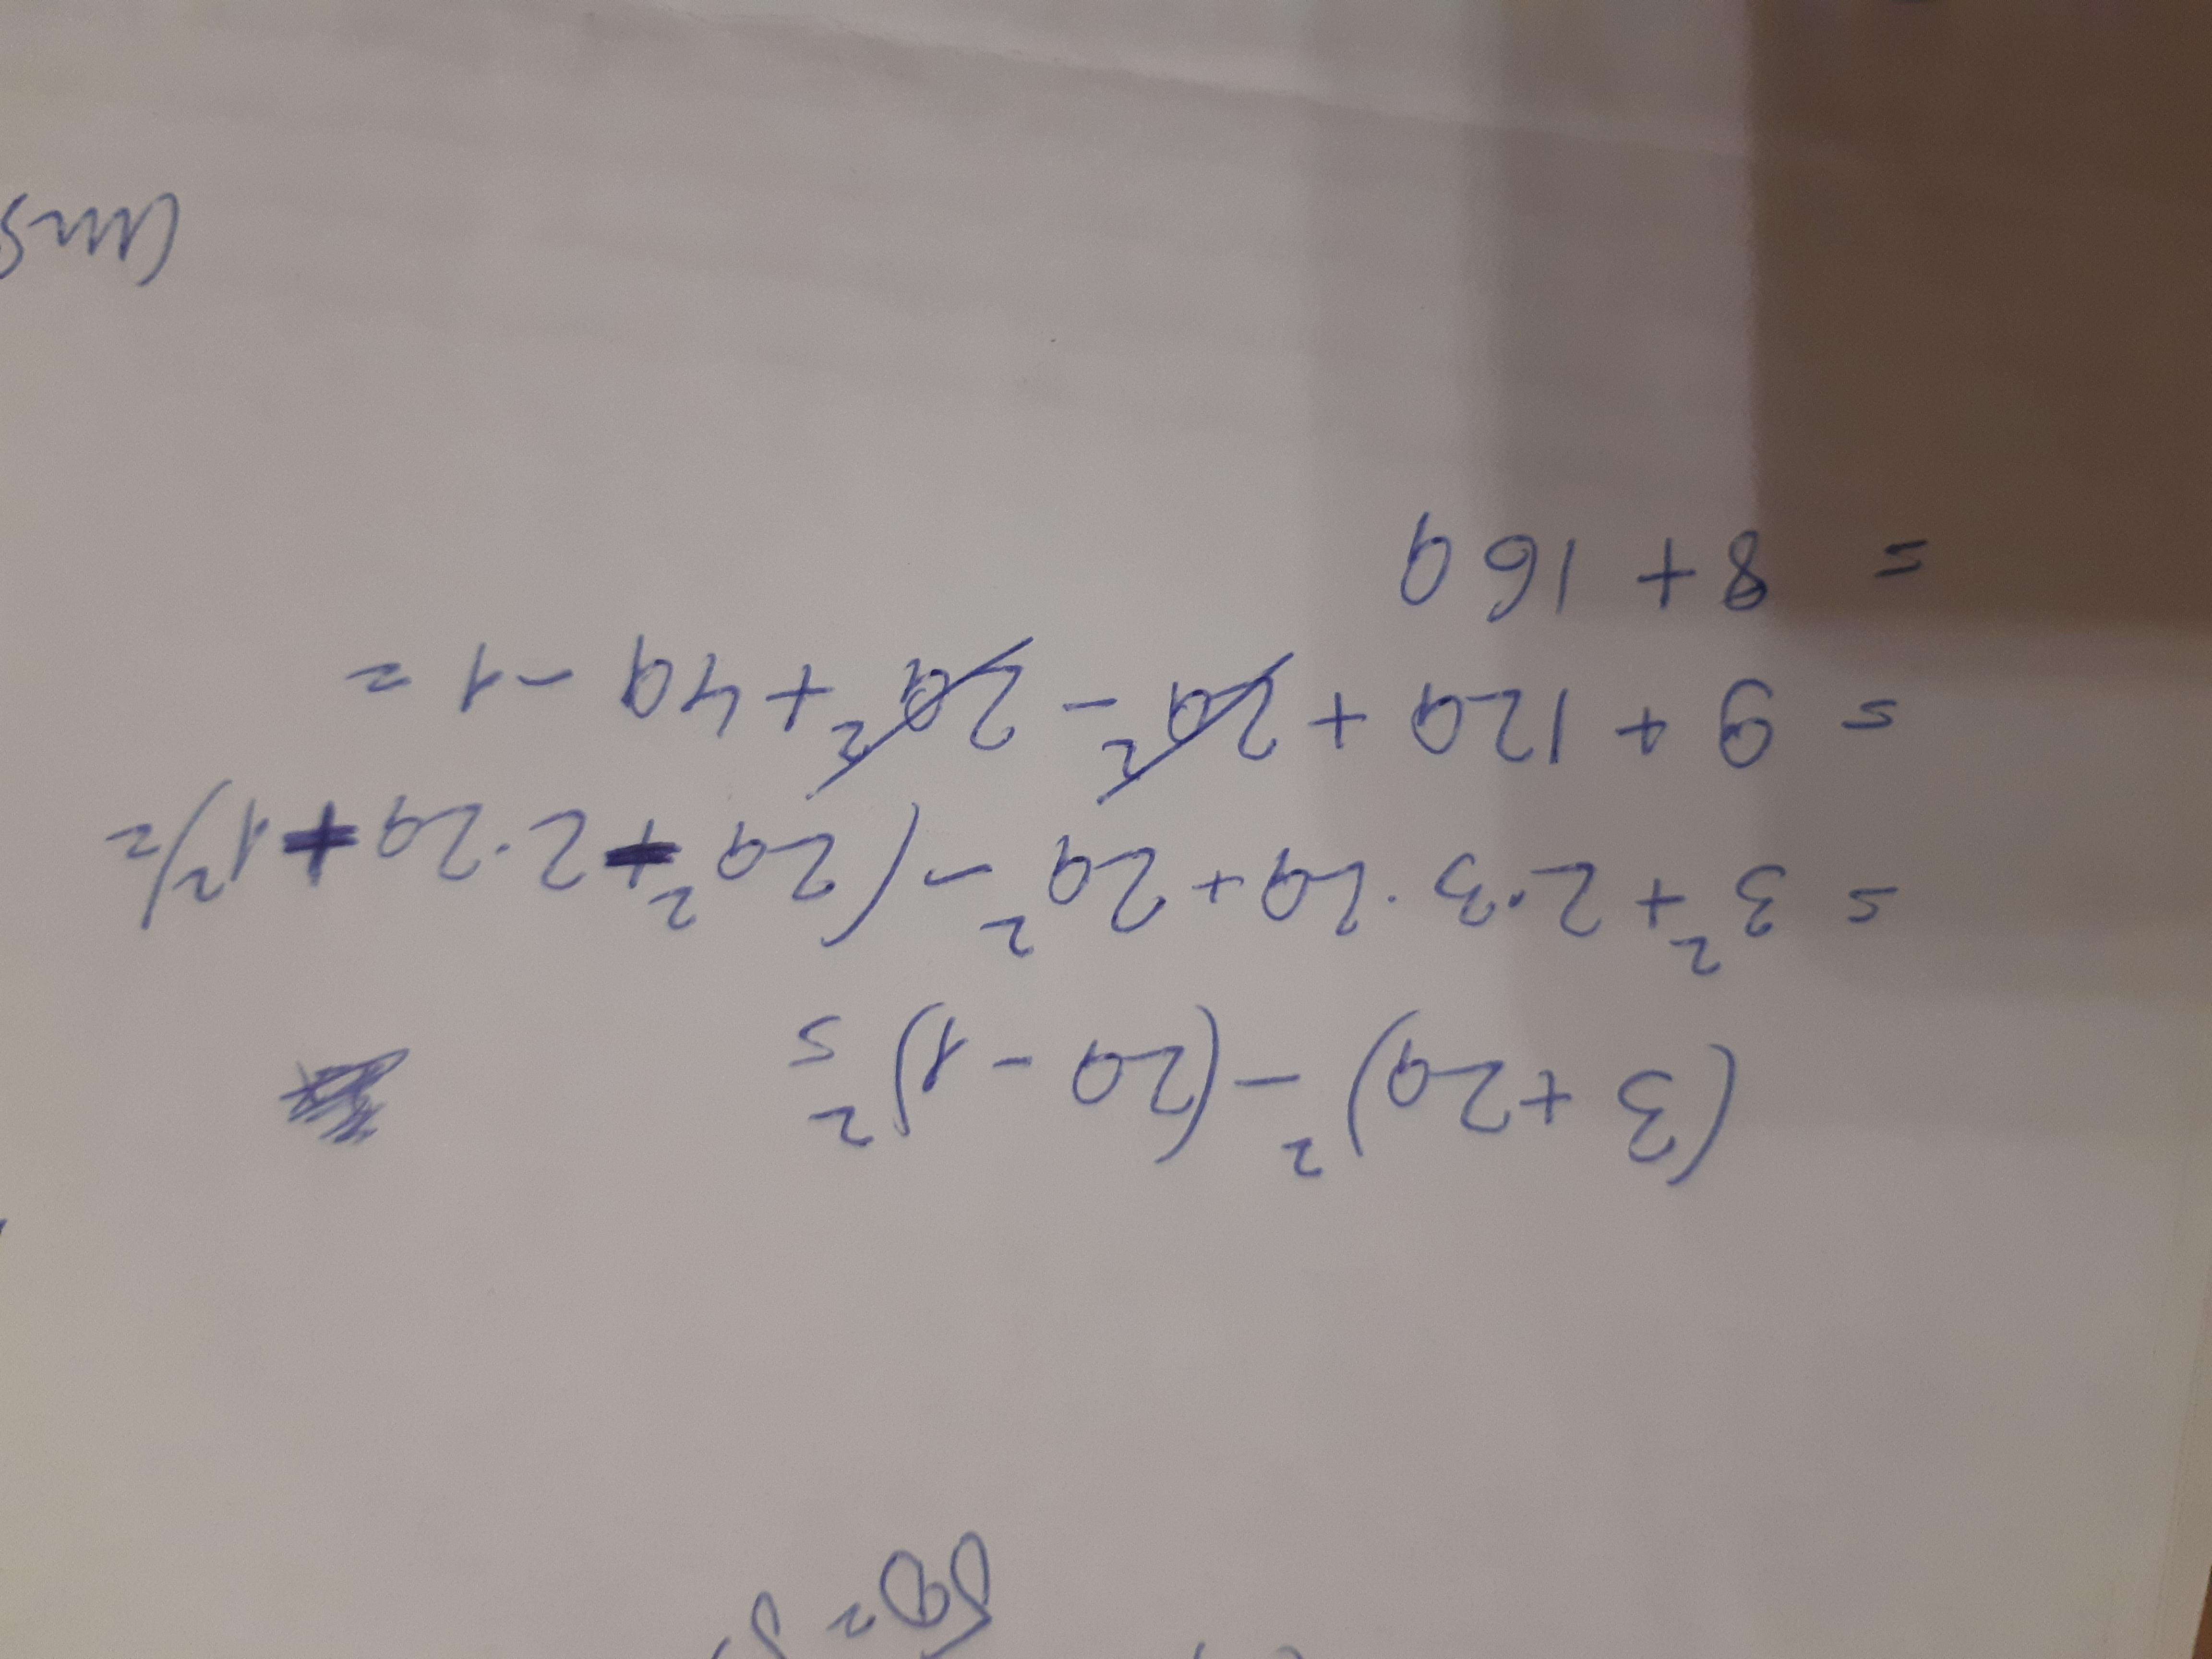 (3+2a)² - (2a-1)² =
= 3² + 2·3·2a + 2a² - (2a² - 2·2a + 1²) =
= 9 + 12a + 2a² - 2a² + 4a - 1 =
= 8 + 16a